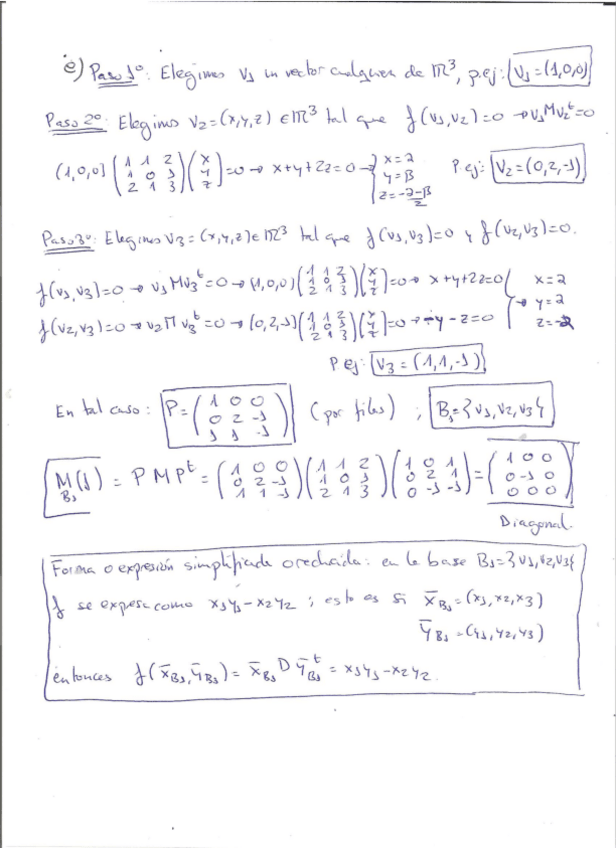 e) Paso 1º: Elegimos v1 un vector cualquiera de ℝ³, p.ej: v1=(1,0,0)
Paso 2º: Elegimos v2=(x,y,z) ∈ ℝ³ tal que f(v1,v2)=0 → v1Mv2ᵗ=0
(1,0,0) (1 1 2 / 1 0 1 / 2 1 3) (x / y / z) =0 → x+y+2z=0 → { x=α / y=β / z=-α-β/2 P.ej: v2=(0,2,-1)
Paso 3º: Elegimos v3=(x,y,z)∈ℝ³ tal que f(v1,v3)=0 y f(v2,v3)=0.
f(v1,v3)=0 → v1Mv3ᵗ=0 → (1,0,0) (1 1 2 / 1 0 1 / 2 1 3) (x / y / z) =0 → x+y+2z=0
f(v2,v3)=0 → v2Mv3ᵗ=0 → (0,2,-1) (1 1 2 / 1 0 1 / 2 1 3) (x / y / z) =0 → -y-z=0 → x=α / y=α / z=-α
P.ej: v3=(1,1,-1)
En tal caso: P= (1 0 0 / 0 2 -1 / 1 1 -1) (por filas) ; B1={v1,v2,v3}
M_B1(f) = P M Pᵗ = (1 0 0 / 0 2 -1 / 1 1 -1) (1 1 2 / 1 0 1 / 2 1 3) (1 0 1 / 0 2 1 / 0 -1 -1) = (1 0 0 / 0 -1 0 / 0 0 0)
Diagonal.
Forma o expresión simplificada o rechada: en la base B1={v1,v2,v3}
f se expresa como x1y1-x2y2 ; esto es si x̄_B1=(x1,x2,x3)
ȳ_B1=(y1,y2,y3)
entonces f(x̄_B1,ȳ_B1)= x̄_B1 D ȳ_B1ᵗ = x1y1-x2y2.